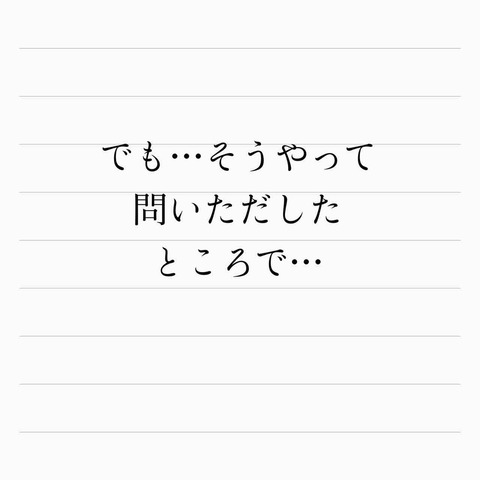 でも…そうやって
問いただした
ところで…